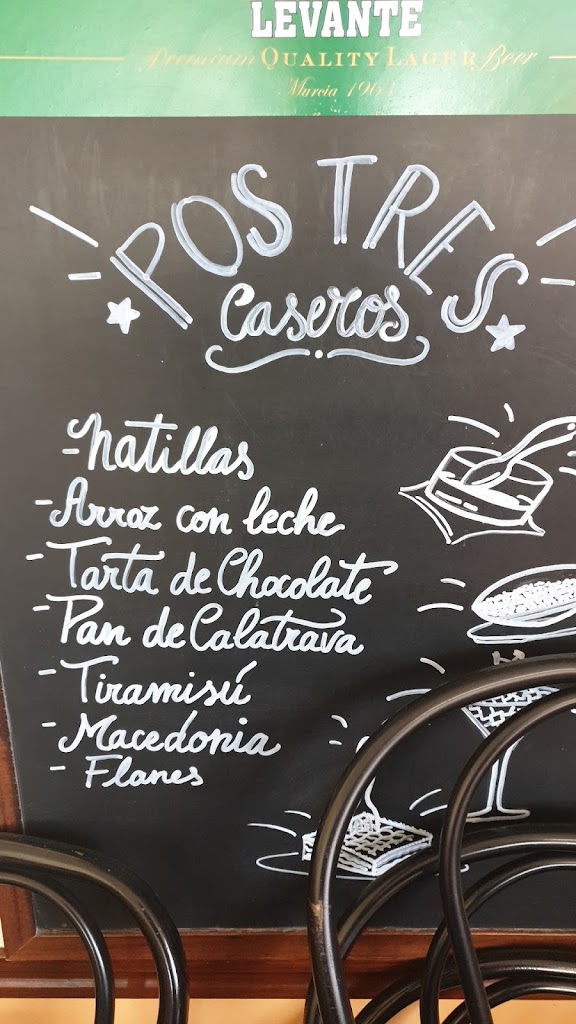 LEVANTE
Premium QUALITY LAGER Beer
Murcia 1963
POSTRES
Caseros
- Natillas
- Arroz con leche
- Tarta de Chocolate
- Pan de Calatrava
- Tiramisú
- Macedonia
- Flanes